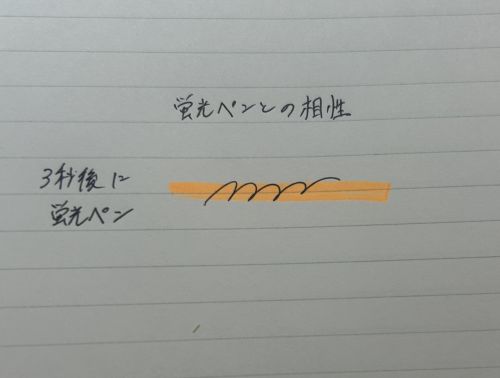 蛍光ペンとの相性
3秒後に
蛍光ペン